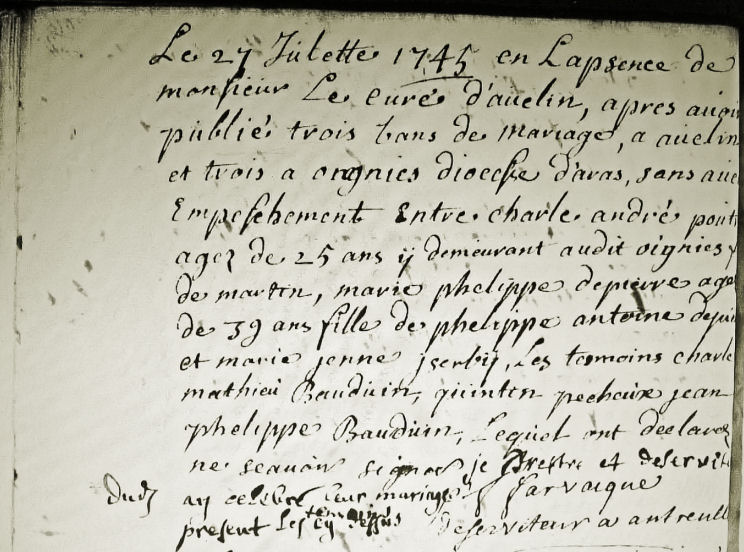 Le 27 Julette 1745 en Lapsence de
monsieur Le curé d'auelin, apres auoir
publié trois bans de mariage, a auelin
et trois a ongnies dioecese d'aras, sans auc
Empeschement Entre charle andré pont
agez de 25 ans ij demeurant audit oignies
de martin, marie phelippe depierre age
de 39 ans fille de phelippe antoine depi
et marie jenne jserbij, Les temoins charle
mathieu Bauduin, quintin pecheux jean
phelippe Bauduin, Lequel ont declarez
ne scauoir signer je prestre et deservit
ay celebre leur mariage
present Les temoins cy dessus
farvacque
deserviteur a antreull